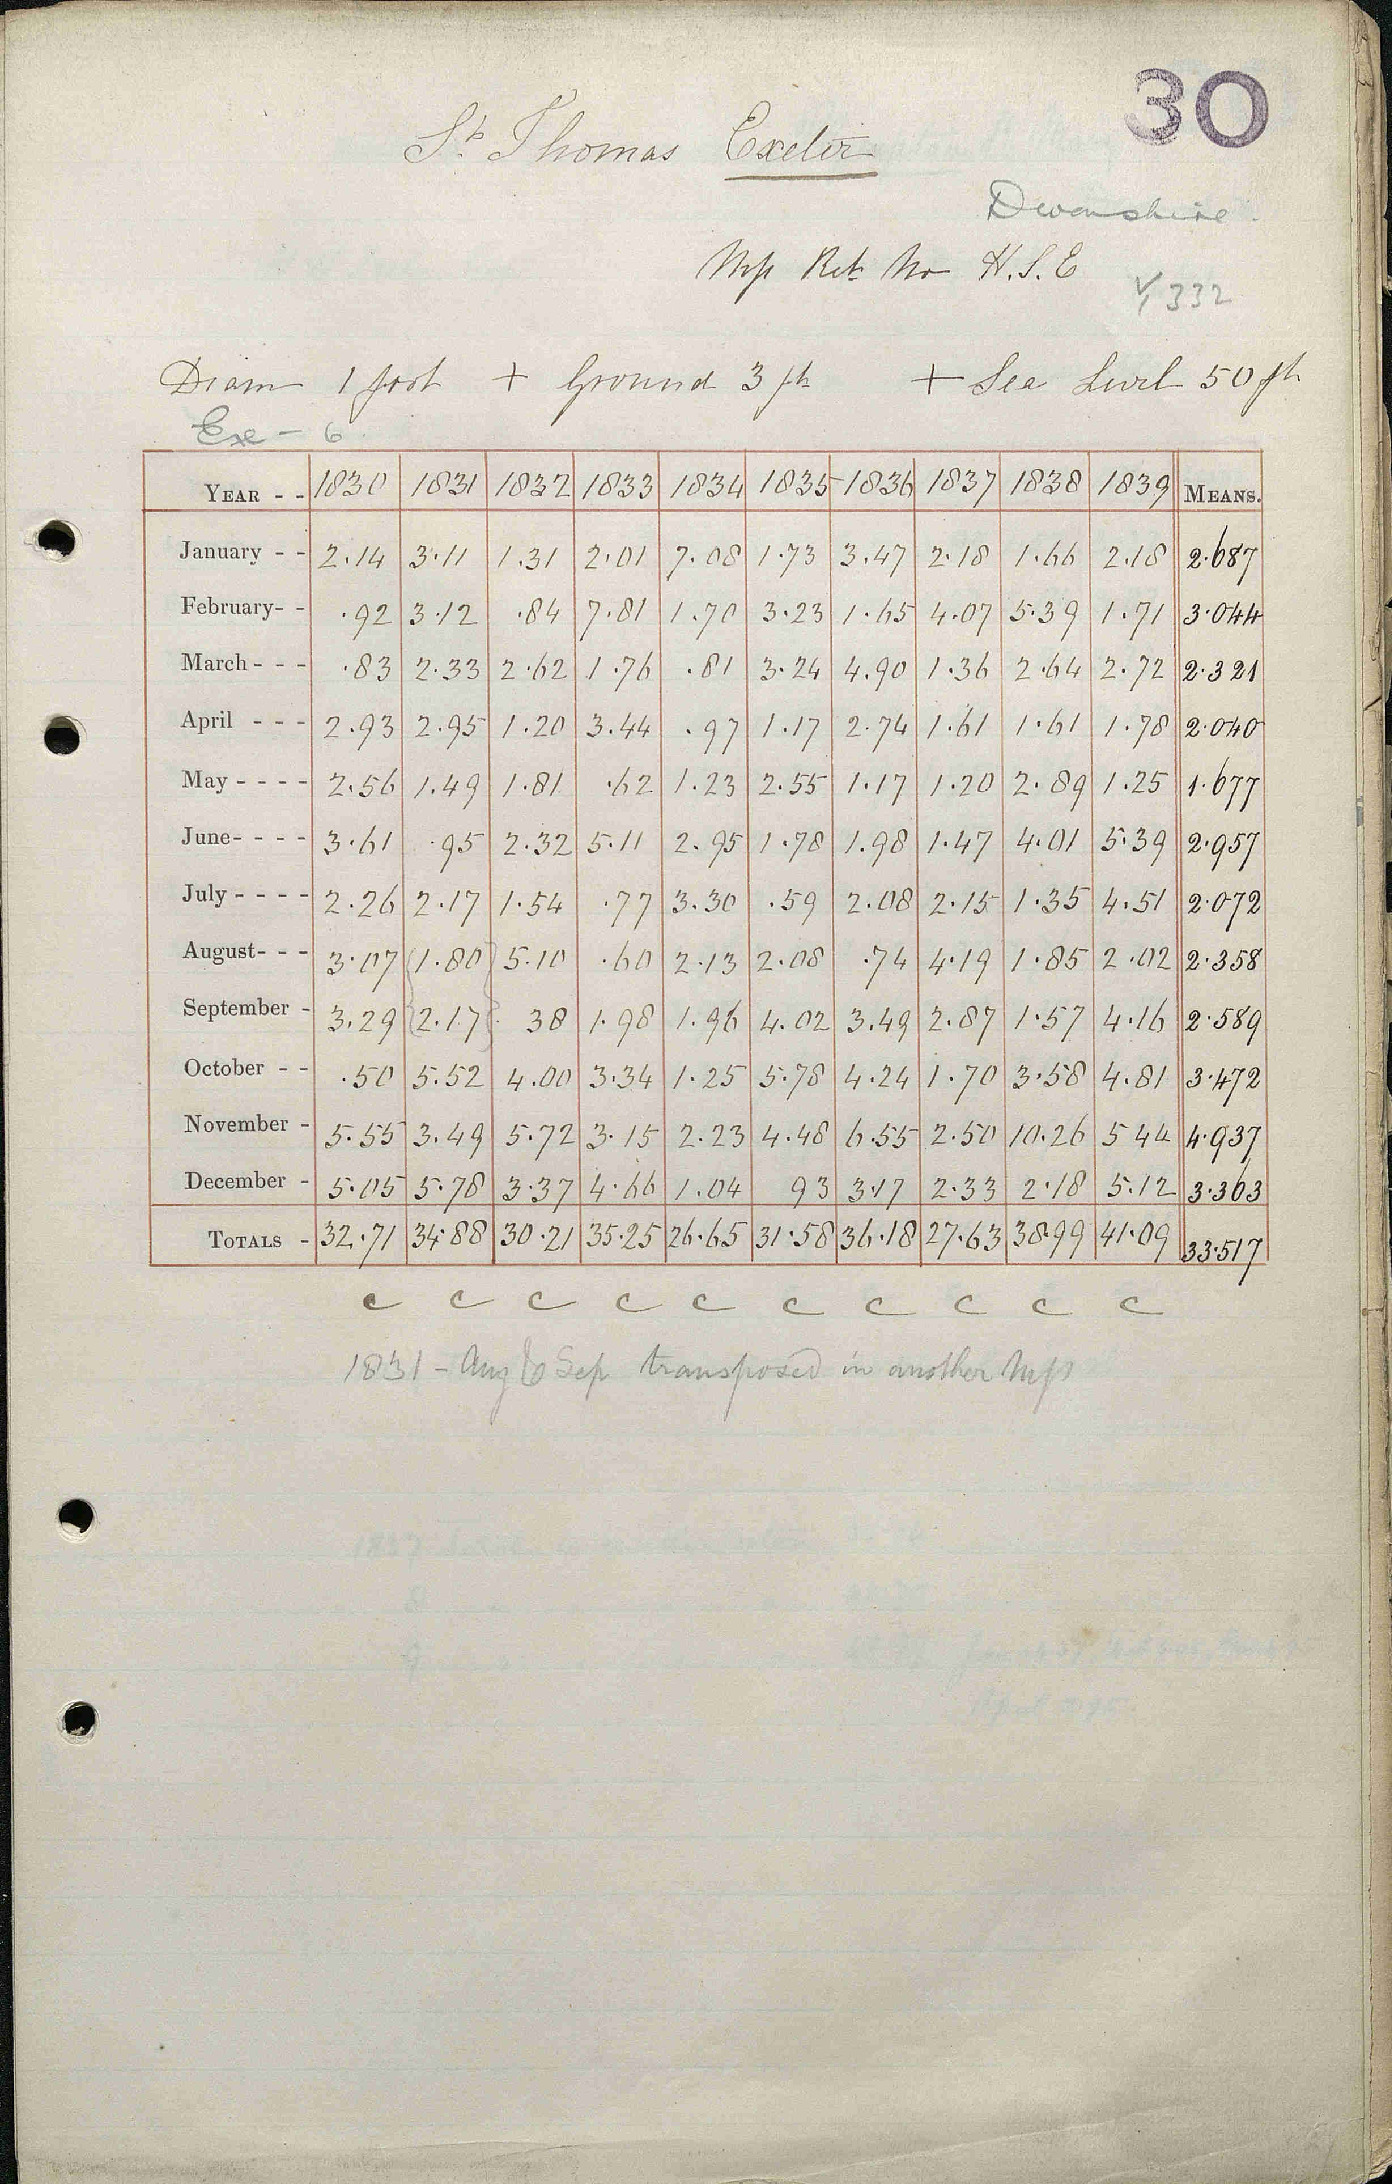 30
St. Thomas Exeter
Devonshire.
Mss Ret. No H.S.E
V, 332
Diam 1 foot + Ground 3 ft + Sea Level 50 ft
Exe - 6
YEAR - - 1830 1831 1832 1833 1834 1835 1836 1837 1838 1839 MEANS.
January - - 2.14 3.11 1.31 2.01 7.08 1.73 3.47 2.18 1.66 2.18 2.687
February- - .92 3.12 .84 7.81 1.70 3.23 1.65 4.07 5.39 1.71 3.044
March - - - .83 2.33 2.62 1.76 .81 3.24 4.90 1.36 2.64 2.72 2.321
April - - - 2.93 2.95 1.20 3.44 .97 1.17 2.74 1.61 1.61 1.78 2.040
May - - - - 2.56 1.49 1.81 .62 1.23 2.55 1.17 1.20 2.89 1.25 1.677
June- - - - 3.61 .95 2.32 5.11 2.95 1.78 1.98 1.47 4.01 5.39 2.957
July - - - - 2.26 2.17 1.54 .77 3.30 .59 2.08 2.15 1.35 4.51 2.072
August- - - 3.07 {1.80} 5.10 .60 2.13 2.08 .74 4.19 1.85 2.02 2.358
September - 3.29 {2.17} 38 1.98 1.96 4.02 3.49 2.87 1.57 4.16 2.589
October - - .50 5.52 4.00 3.34 1.25 5.78 4.24 1.70 3.58 4.81 3.472
November - 5.55 3.49 5.72 3.15 2.23 4.48 6.55 2.50 10.26 5 44 4.937
December - 5.05 5.78 3.37 4.66 1.04 93 3.17 2.33 2.18 5.12 3.363
TOTALS - 32.71 34.88 30.21 35.25 26.65 31.58 36.18 27.63 38.99 41.09 33.517
c c c c c c c c c c
1831 - Aug & Sep transposed in another Mss